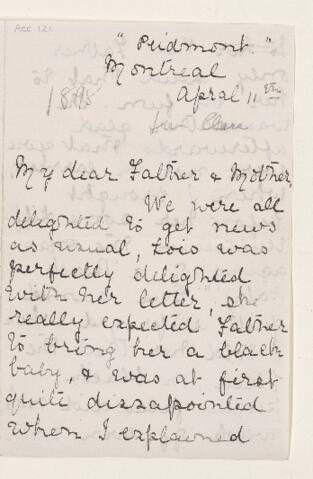 Acc. 121
"Peidmont."
Montreal
April 11th
1895
My dear Father & Mother,
We were all
delighted to get news
as usual, Lois was
perfectly delighted
with her letter, she
really expected Father
to bring her a black
baby, & was at first
quite dissapointed
when I explained